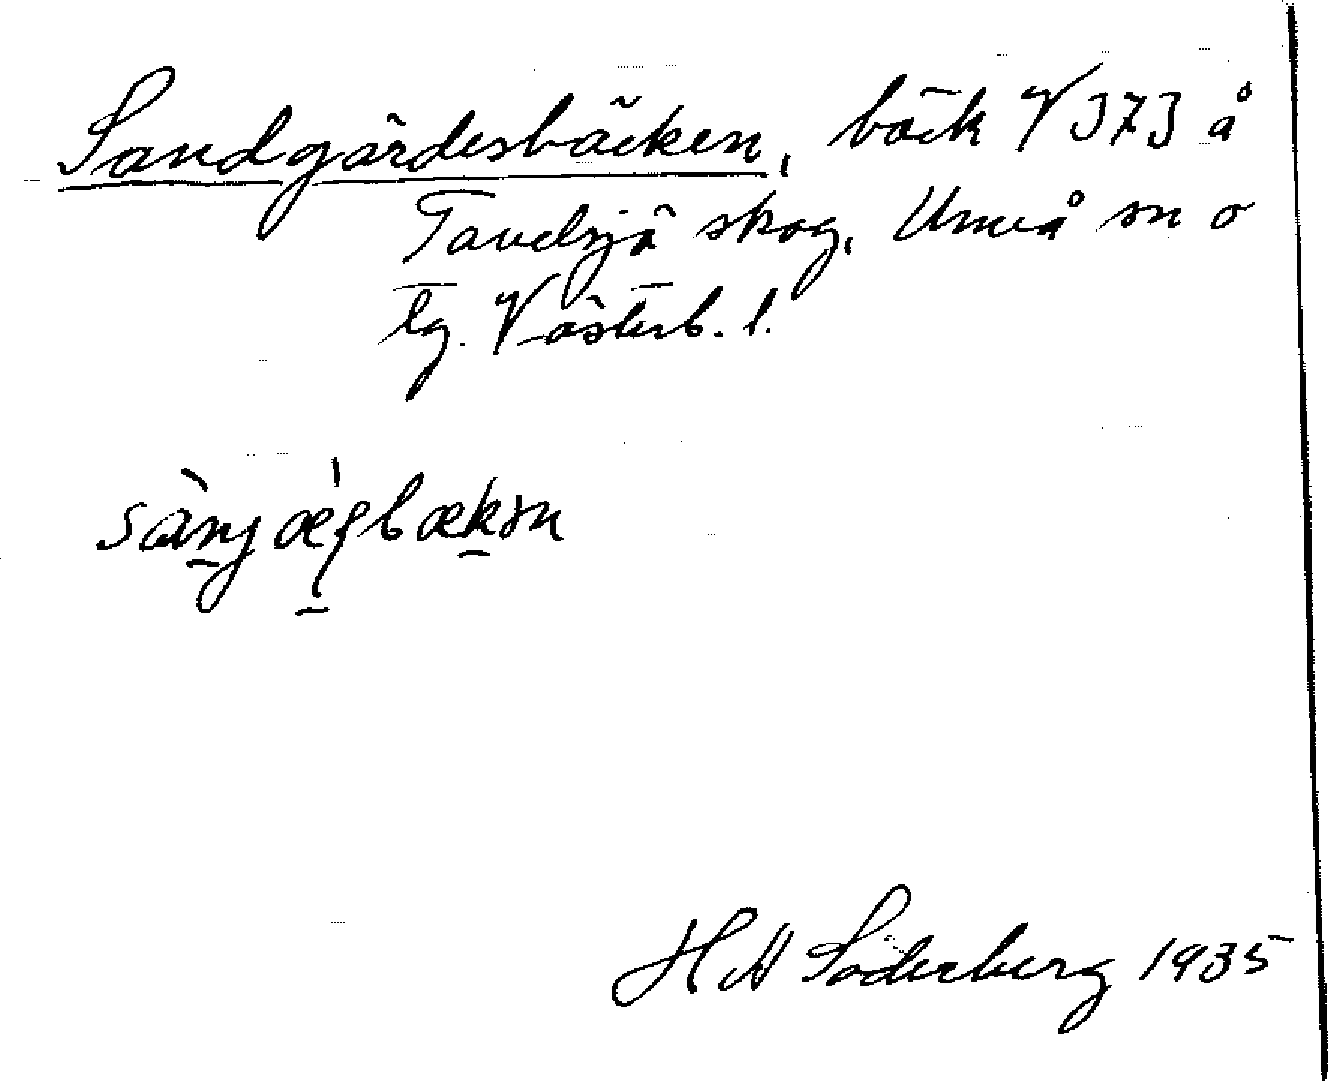 Sandgärdesbäcken, bäck V 373 å
Tavelsjö skog, Umeå sn o
tg. Västerb. l.
sànjæ̀ʂbækən
H A Söderberg 1935